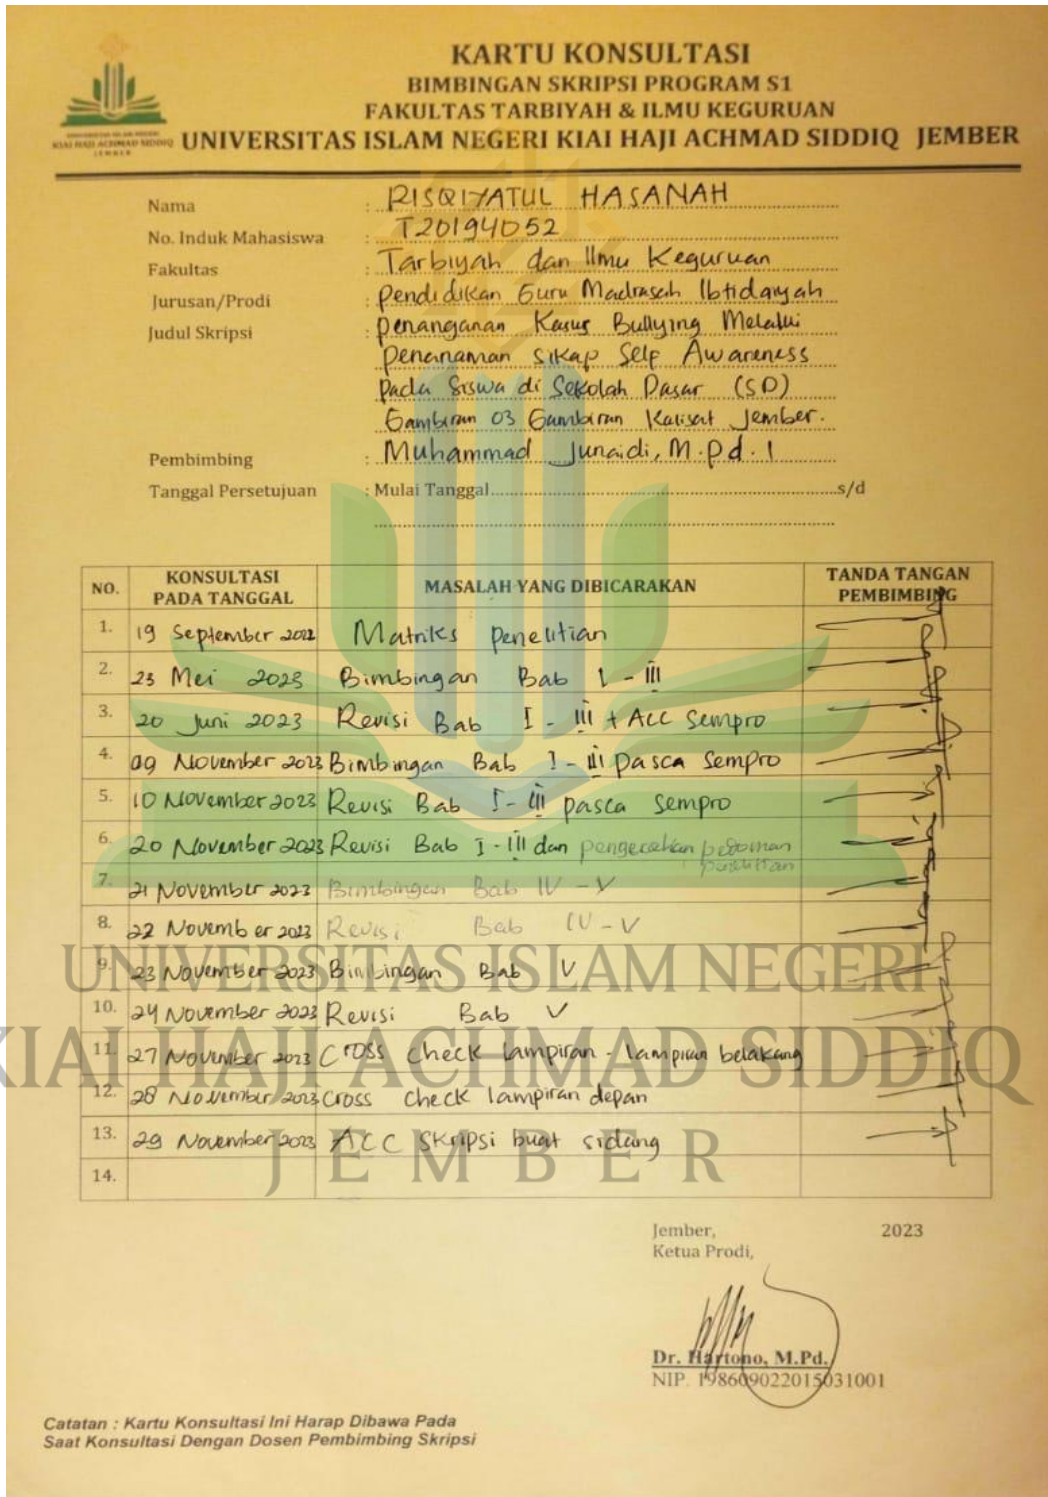 KARTU KONSULTASI
BIMBINGAN SKRIPSI PROGRAM S1
FAKULTAS TARBIYAH & ILMU KEGURUAN
UNIVERSITAS ISLAM NEGERI KIAI HAJI ACHMAD SIDDIQ JEMBER
UNIVERSITAS ISLAM NEGERI
KIAI HAJI ACHMAD SIDDIQ
JEMBER
Nama : RISQIYATUL HASANAH
No. Induk Mahasiswa : T20194052
Fakultas : Tarbiyah dan Ilmu Keguruan
Jurusan/Prodi : Pendidikan Guru Madrasah Ibtidaiyah
Judul Skripsi : Penanganan Kasus Bullying Melalui
Penanaman Sikap Self Awareness
Pada Siswa di Sekolah Dasar (SD)
Gambiran 03 Gambiran Kalisat Jember.
Pembimbing : Muhammad Junaidi, M.Pd.I
Tanggal Persetujuan : Mulai Tanggal..........s/d
NO. KONSULTASI PADA TANGGAL MASALAH YANG DIBICARAKAN TANDA TANGAN PEMBIMBING
1. 19 September 2022 Matriks Penelitian
2. 23 Mei 2023 Bimbingan Bab I - III
3. 20 Juni 2023 Revisi Bab I - III + ACC Sempro
4. 09 November 2023 Bimbingan Bab I - III pasca Sempro
5. 10 November 2023 Revisi Bab I - III pasca sempro
6. 20 November 2023 Revisi Bab I - III dan pengecekan pedoman penelitian
7. 21 November 2023 Bimbingan Bab IV - V
8. 22 November 2023 Revisi Bab IV - V
9. 23 November 2023 Bimbingan Bab V
10. 24 November 2023 Revisi Bab V
11. 27 November 2023 Cross check lampiran - lampiran belakang
12. 28 November 2023 Cross check lampiran depan
13. 29 November 2023 ACC Skripsi buat sidang
14.
UNIVERSITAS ISLAM NEGERI
KIAI HAJI ACHMAD SIDDIQ
JEMBER
Jember, 2023
Ketua Prodi,
Dr. Hartono, M.Pd.
NIP. 198609022015031001
Catatan : Kartu Konsultasi Ini Harap Dibawa Pada
Saat Konsultasi Dengan Dosen Pembimbing Skripsi